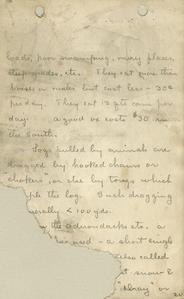 loads, poor swamping, miry places,
steep grades, etc. They eat more than
horses or mules but cost less - 30¢
per day. They eat 12 qts corn per
day. A good ox costs $30 in
the South.
Logs pulled by animals are
dragged by hooked chains or
"chokers", or else by tongs, which
the log. Such dragging
usually < 100 yds.
the adirondacks etc. a
used - a short single
also called
snow &
"dray" or
20